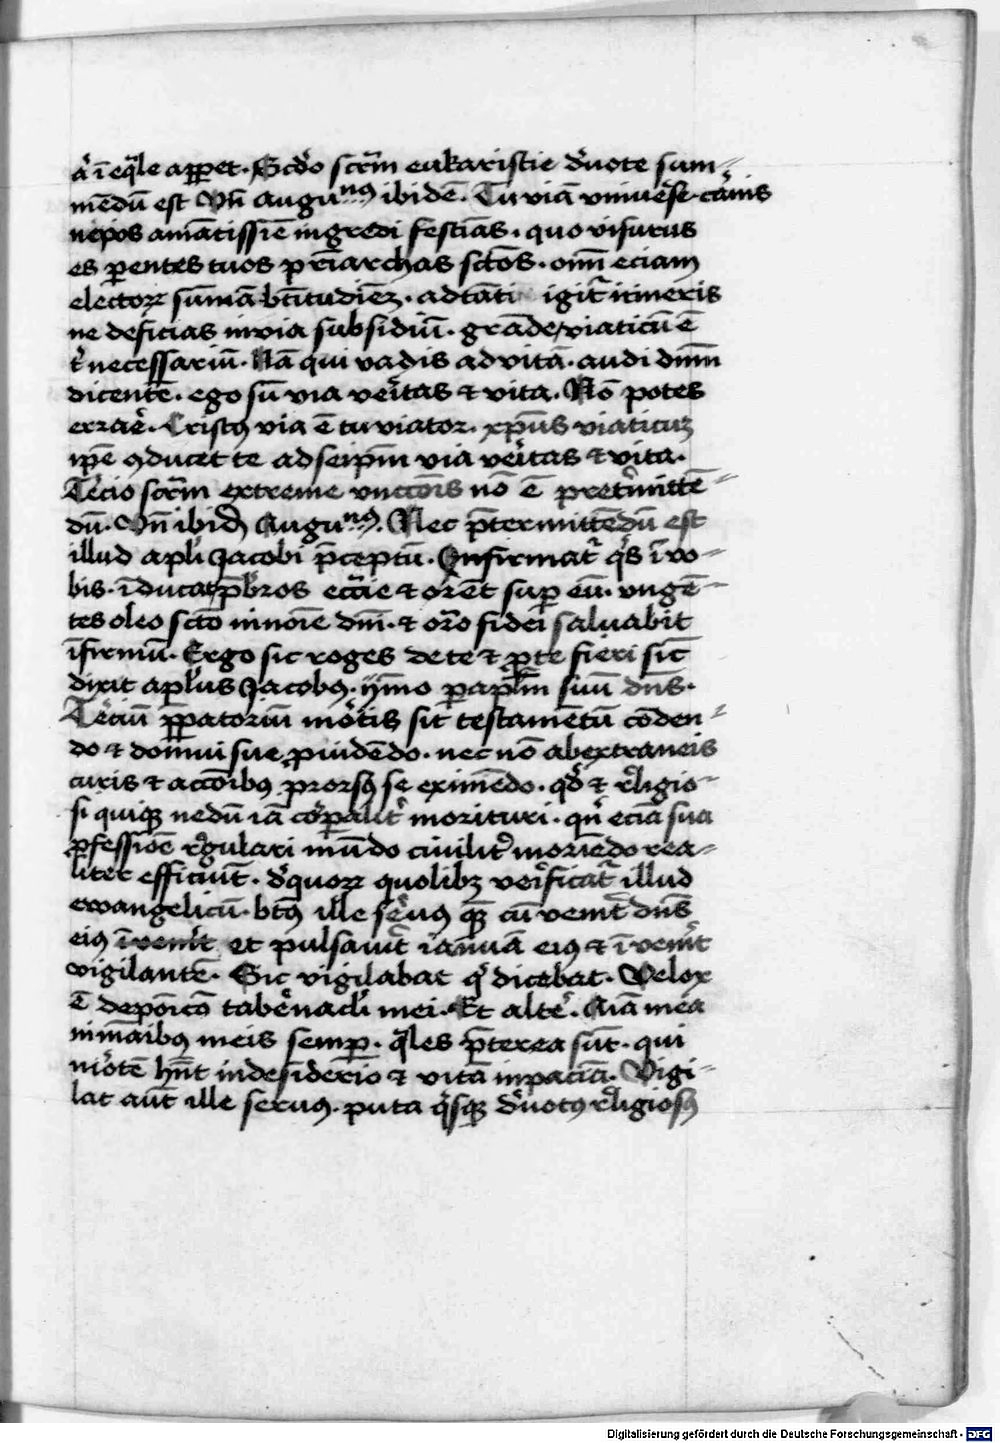 aͬ ī eq̄le appet. Scdͦo scr̄m eukaristie dͤuote sum⸗
mēdū est Vn̄ Auguⁿꝰ ibidē. Tu viā vniuͤse carnis
nepos amātissīe ingredi festīas. quo visurus
es pͤentes tuos pr̄iarchas sctōs. omī eciam
electoꝝ sūmā btītudīeꝫ. ad tāti igitͬ itineris
ne deficias in via subsidiū. grāde viaticū ē
tͥ necessariū. Nā qui vadis ad vitā. audi dn̄m
dicentē. ego sū via veͥtas ⁊ vita. Nō potes
erraͤe. Cristꝰ via ē tu viator. xp̄us viaticuꝫ
ip̄e ꝯducet te ad seip̄m via veͥtas ⁊ vita.
Teͬcio scr̄m extreme vnctōis nō ē pretͥmittē⸗
dū. Vn̄ ibidē Auguⁿꝰ. Nec p̄termittēdū est
illud apl̄i Jacobi p̄ceptū. Infirmatͬ qͥs ī vo⸗
bis. īducat pͬbr̄os ecc̄ie ⁊ orēt suꝑ eū. vngē⸗
tes oleo sctō in noīe dn̄i. ⁊ or̄o fidei saluabit
īfirmū. Ergo sic roges de te ⁊ ꝓ te fieri sic̄
dixit apl̄us Jacobꝰ. ymͦmo ꝑ apl̄m suū dn̄s.
Teͬciū p̄patoriū moͬtis sit testamētū cōden⸗
do ⁊ domui sue ꝓuidēdo. nec nō ab extraneis
curis ⁊ acc̄oibꝰ prorsꝰ se eximēdo. qdͦ ⁊ rͤligio⸗
si quiqꝫ nedū iā corꝑalitͬ morituri. qn̄ eciā sua
ꝓfessiōe rͤgulari mūdo ciuilitͬ moriēdo rea⸗
liter efficiūt. dͤ quoꝝ quolibꝫ veͥficatͬ illud
ewangelicū. btūs ille seͬuꝰ qͣꝫ cū venītͬ dn̄s
eiꝰ īvenitͬ et pulsauitͬ ianuā eiꝰ ⁊ īvenitͬ
vigilantē. Sic vigilabat qͥ dicebat. Velox
ē depōico tabeͬnacl̄i mei. Et alteͬ. Aīa mea
in māibꝰ meis sempͬ. qͣles p̄terea sūt. qui
moͬtē hn̄t in desideͬio ⁊ vitā in pacīcia. Vigi⸗
lat aūt ille seruꝰ. puta qͥsqꝫ dͤuotꝰ rͤligiosꝰ
Digitalisierung gefördert durch die Deutsche Forschungsgemeinschaft - DFG